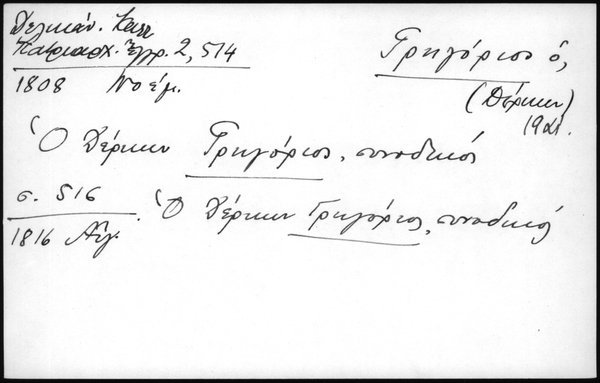 Δελικάν. Καλ
Πατριαρχ. Έγγρ. 2, 514
1808 Νοέμ.
Γρηγόριος ὁ,
(Δέρκων)
Ὁ Δέρκων Γρηγόριος, συνοδικός
σ. 516
1816 Αὔγ. Ὁ Δέρκων Γρηγόριος, συνοδικός